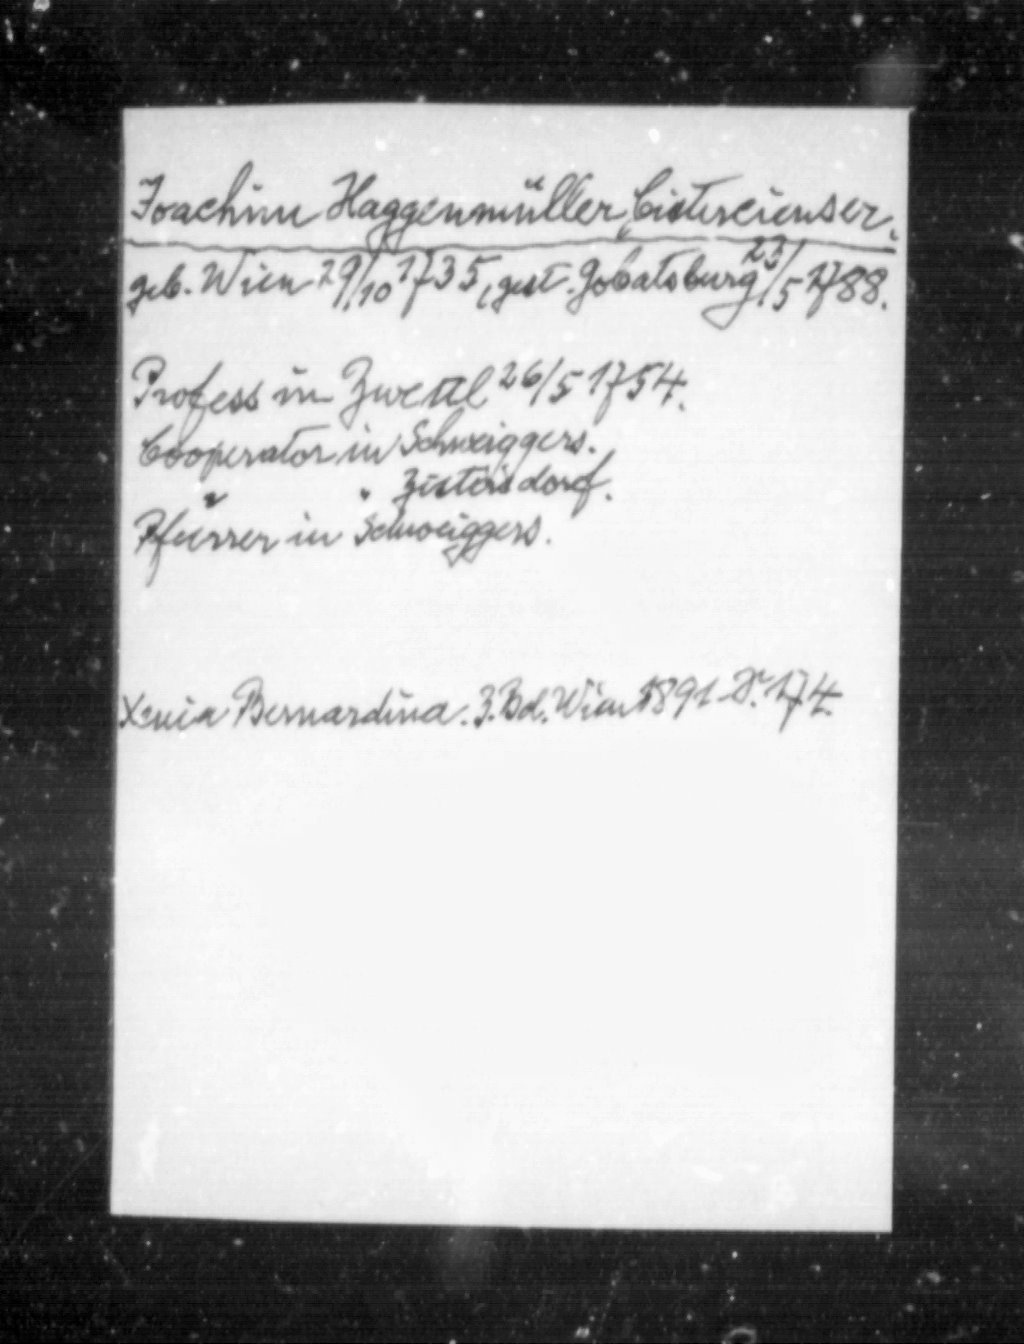 Joachim Haggenmüller, Cistercienser.
geb. Wien 29/10 1735, gest. Gobatsburg 23/5 1788.
Profess in Zwettl 26/5 1754.
Cooperator in Schweiggers.
" " Zistersdorf.
Pfarrer in Schweiggers.
Xenia Bernardina. 3. Bd. Wien 1891 S. 174.